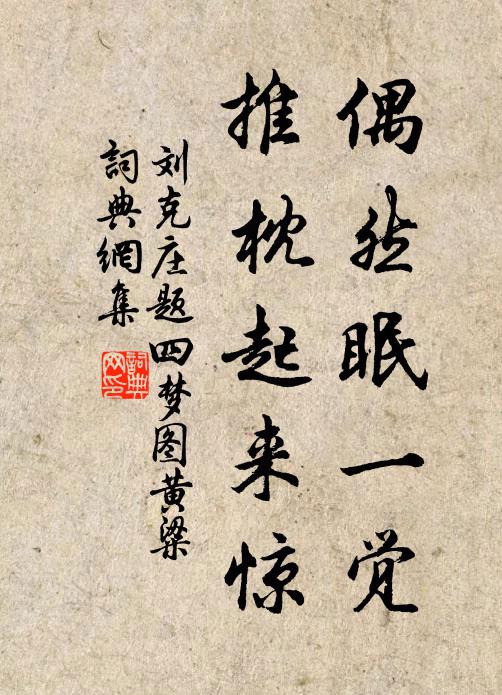 偶然眠一觉
推枕起来惊
刘克庄题四梦图黄梁
詞典網集
詞典网印